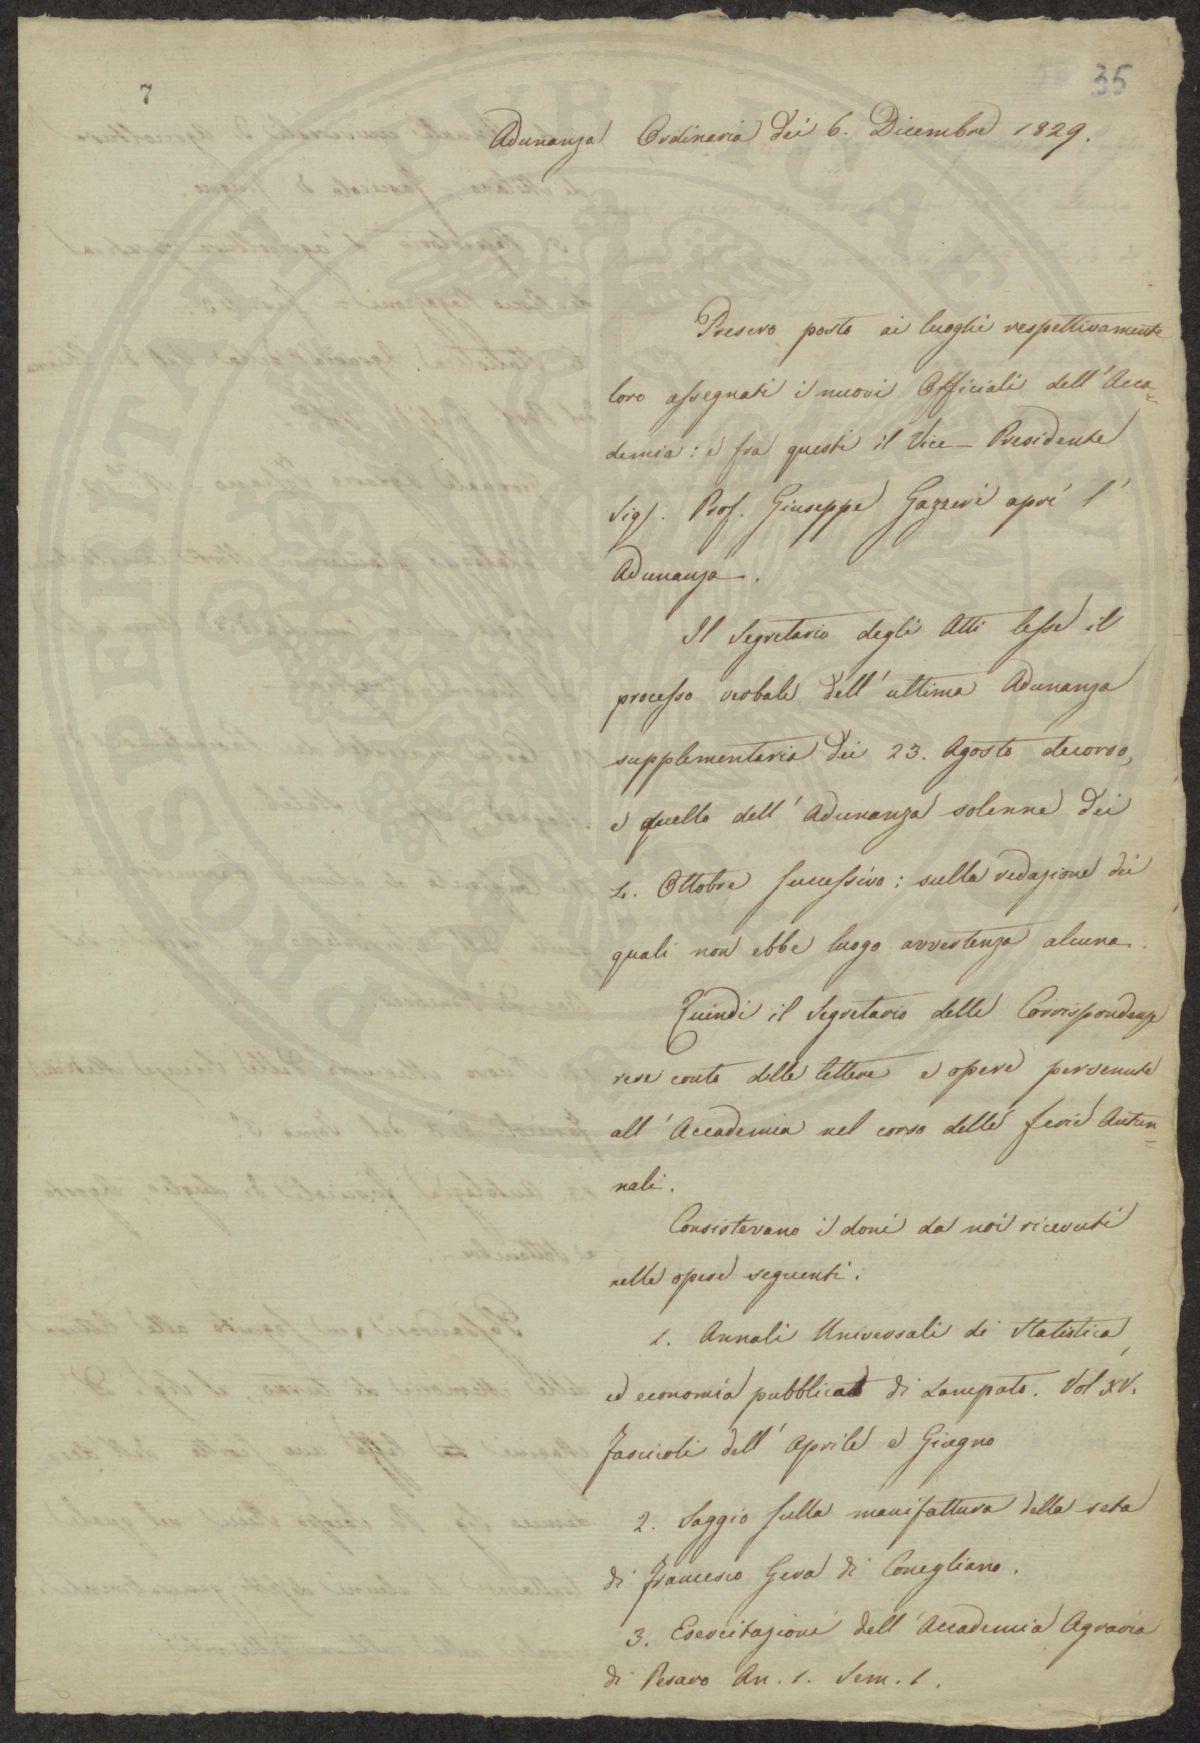 7
35
Adunanza Ordinaria dei 6. Dicembre 1829.
Presero posto ai luoghi respettivamente
loro assegnati i nuovi Officiali dell'Acca=
demia: e fra questi il Vice-Presidente
Sig. Prof. Giuseppe Gazzeri aprì l'
Adunanza.
Il Segretario degli Atti lesse il
processo verbale dell'ultima Adunanza
supplementaria dei 23. Agosto decorso,
e quello dell'Adunanza solenne dei
4. Ottobre successivo: sulla redazione dei
quali non ebbe luogo avvertenza alcuna.
Quindi il Segretario delle Corrispondenze
rese conto delle lettere e opere pervenute
all'Accademia nel corso delle ferie Autun=
nali.
Consistevano i doni da noi ricevuti
nelle opere seguenti.
1. Annali Universali di Statistica,
ed economia pubblicati di Lampato. Vol XV.
Fascicoli dell'Aprile e Giugno
2. Saggio sulla manifattura della seta
di Francesco Gera di Conegliano.
3. Esercitazioni dell'Accademia Agraria
di Pesaro An. 1. Sem. 1.